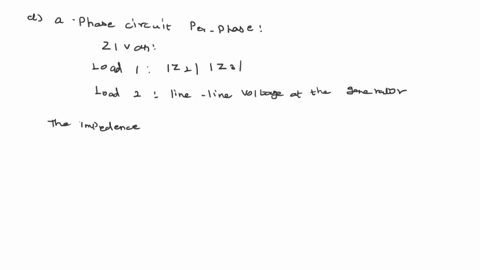 d) a - Phase circuit Per-phase:
Z1 van:
Load 1 : |Z2| |Z3|
Load 2 : line -line voltage at the generator
The impedence